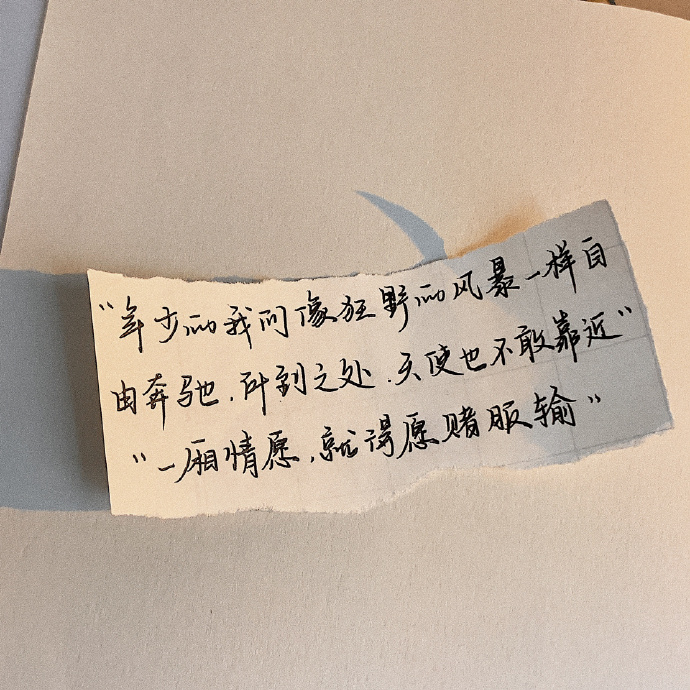 “年少的我们像狂野的风暴一样自
由奔驰，所到之处，天使也不敢靠近”
“一厢情愿，就得愿赌服输”